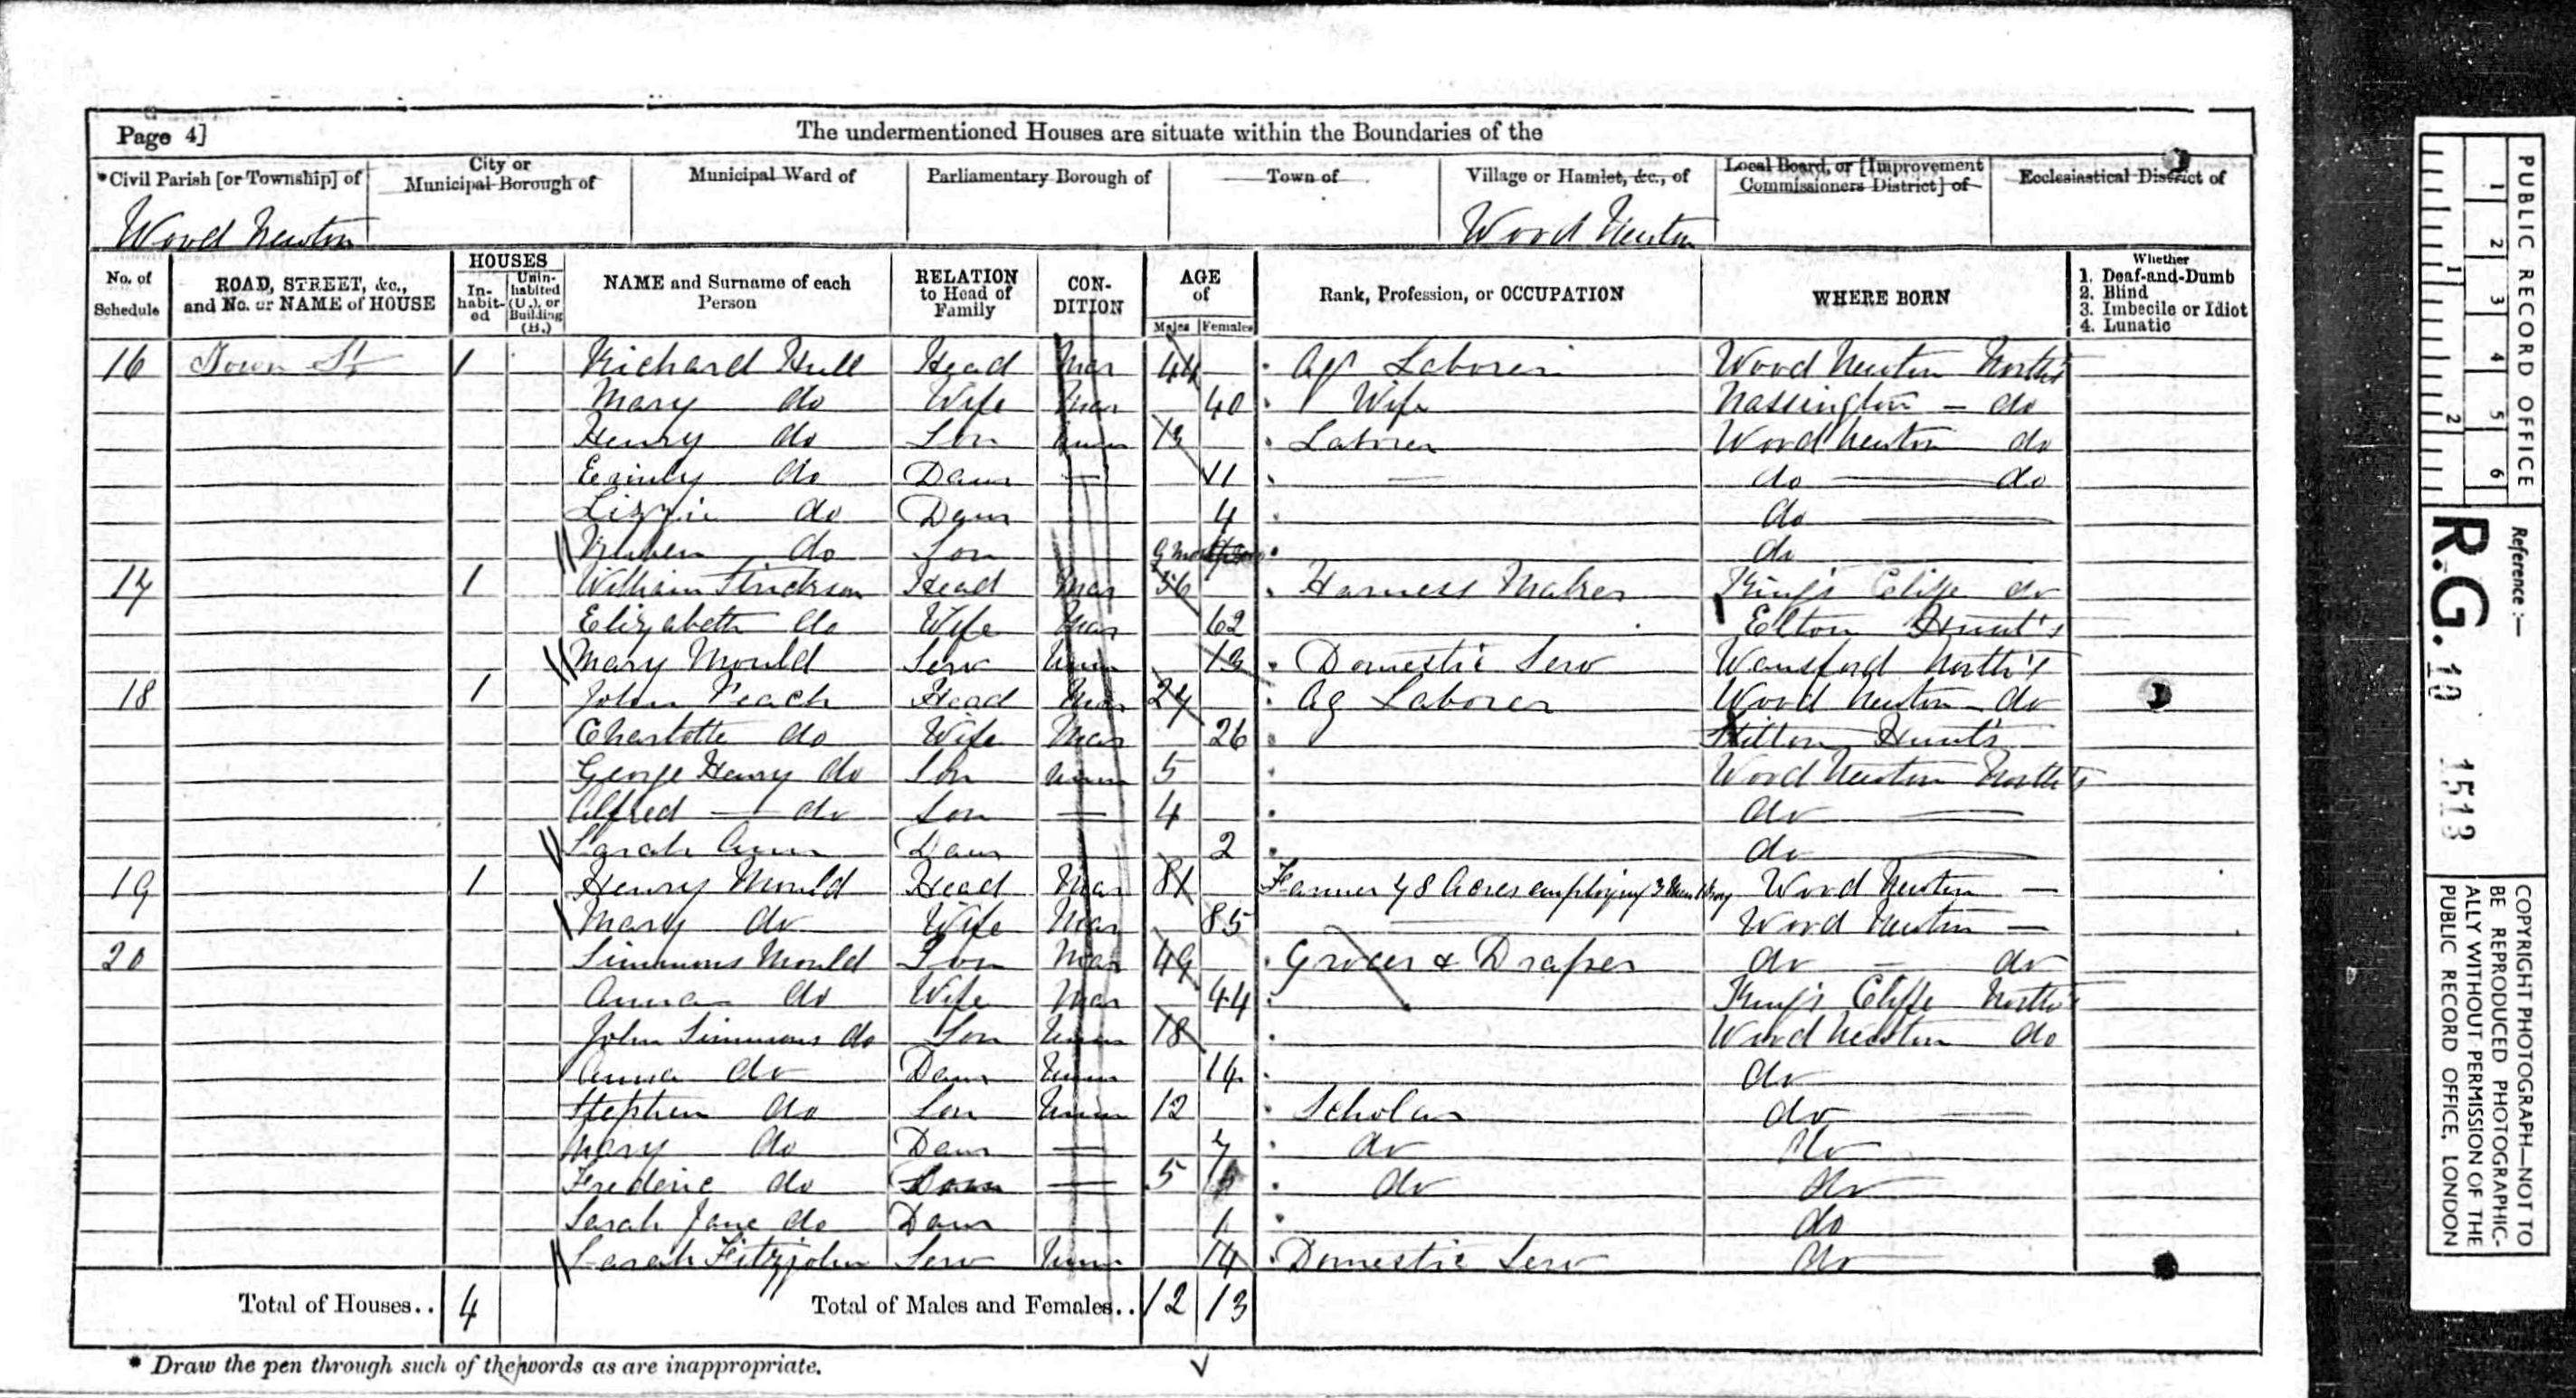 Page 4]
The undermentioned Houses are situate within the Boundaries of the
*Civil Parish [or Township] of
City or Municipal Borough of
Municipal Ward of
Parliamentary Borough of
Town of
Village or Hamlet, &c., of
Local Board, or [Improvement Commissioners District] of
Ecclesiastical District of
Wood Newton
Wood Newton
No. of Schedule
ROAD, STREET, &c., and No. or NAME of HOUSE
HOUSES
In-habit-ed
Unin-habited (U.), or Building (B.)
NAME and Surname of each Person
RELATION to Head of Family
CON-DITION
AGE of
Males Females
Rank, Profession, or OCCUPATION
WHERE BORN
Whether
1. Deaf-and-Dumb
2. Blind
3. Imbecile or Idiot
4. Lunatic
16 Town St 1 Richard Hull Head Mar 44 Ag Laborer Wood Newton North's
Mary do Wife Mar 40 Wife Nassington - do
Henry do Son Unm 13 Laborer Wood Newton do
Emily do Daur — 11 — do — do
Lizzie do Daur 4 do —
do Son 9 do
17 1 William Head Mar 56 Harness Maker King's Cliffe do
Elizabeth do Wife Mar 62 Elton Hunt's
Mary Mould Serv Unm 13 Domestic Serv Wansford North's
18 1 John Peach Head Mar 27 Ag Laborer Wood Newton - do
Charlotte do Wife Mar 26 Stilton Hunts
George Henry do Son Unm 5 Wood Newton North's
Alfred — do Son — 4 do —
Sarah Ann Daur 2 do —
19 1 Henry Mould Head Mar 81 Farmer 48 Acres employing 3 Men 1 Boy Wood Newton —
Mary do Wife Mar 85 — Wood Newton —
20 Simmons Mould Son Mar 49 Grocer & Draper do - do
Anna do Wife Mar 44 King's Cliffe North's
John Simmons do Son Unm 18 Wood Newton do
Anna do Daur Unm 14 do
Stephen do Son Unm 12 Scholar do —
Mary do Daur — 7 do do
Frederic do — 5 do do
Sarah Jane do Daur 1 do
Sarah Fitzjohn Serv Unm 14 Domestic Serv do
Total of Houses.. 4 Total of Males and Females.. 12 13
* Draw the pen through such of the words as are inappropriate.
PUBLIC RECORD OFFICE
1 2 3 4 5 6
1 2
Reference:—
R.G. 10 1513
COPYRIGHT PHOTOGRAPH—NOT TO
BE REPRODUCED PHOTOGRAPHIC-
ALLY WITHOUT PERMISSION OF THE
PUBLIC RECORD OFFICE, LONDON